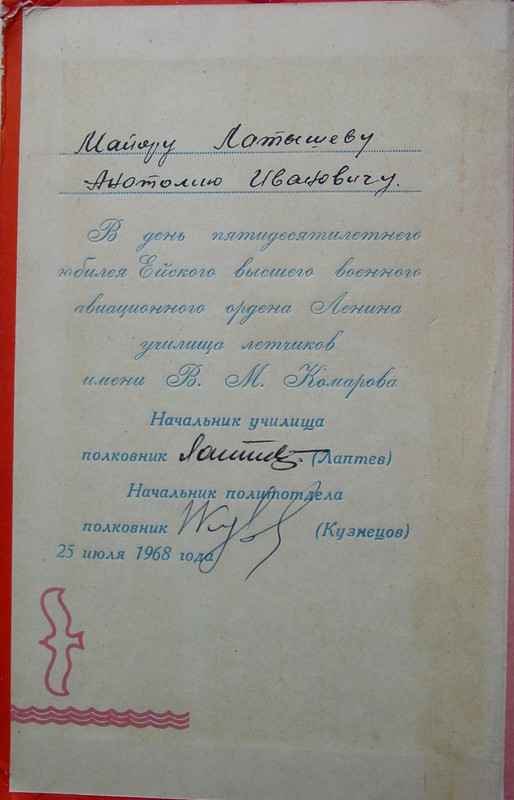 Майору Латышеву
Анатолию Ивановичу.
В день пятидесятилетнего
юбилея Ейского высшего военного
авиационного ордена Ленина
училища летчиков
имени В. М. Комарова
Начальник училища
полковник Лаптев (Лаптев)
Начальник политотдела
полковник (Кузнецов)
25 июля 1968 года